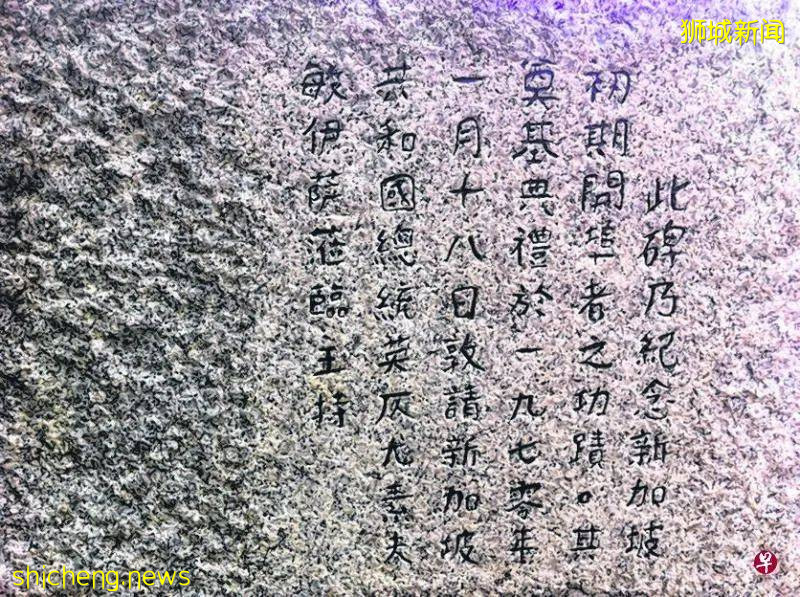 狮城新闻
此碑乃紀念新加坡
初期開埠者之功蹟。其
奠基典禮於一九七零年
一月十八日敦請新加坡
共和國總統英仄尤素夫
敏伊薩蒞臨主持
shicheng.news
早